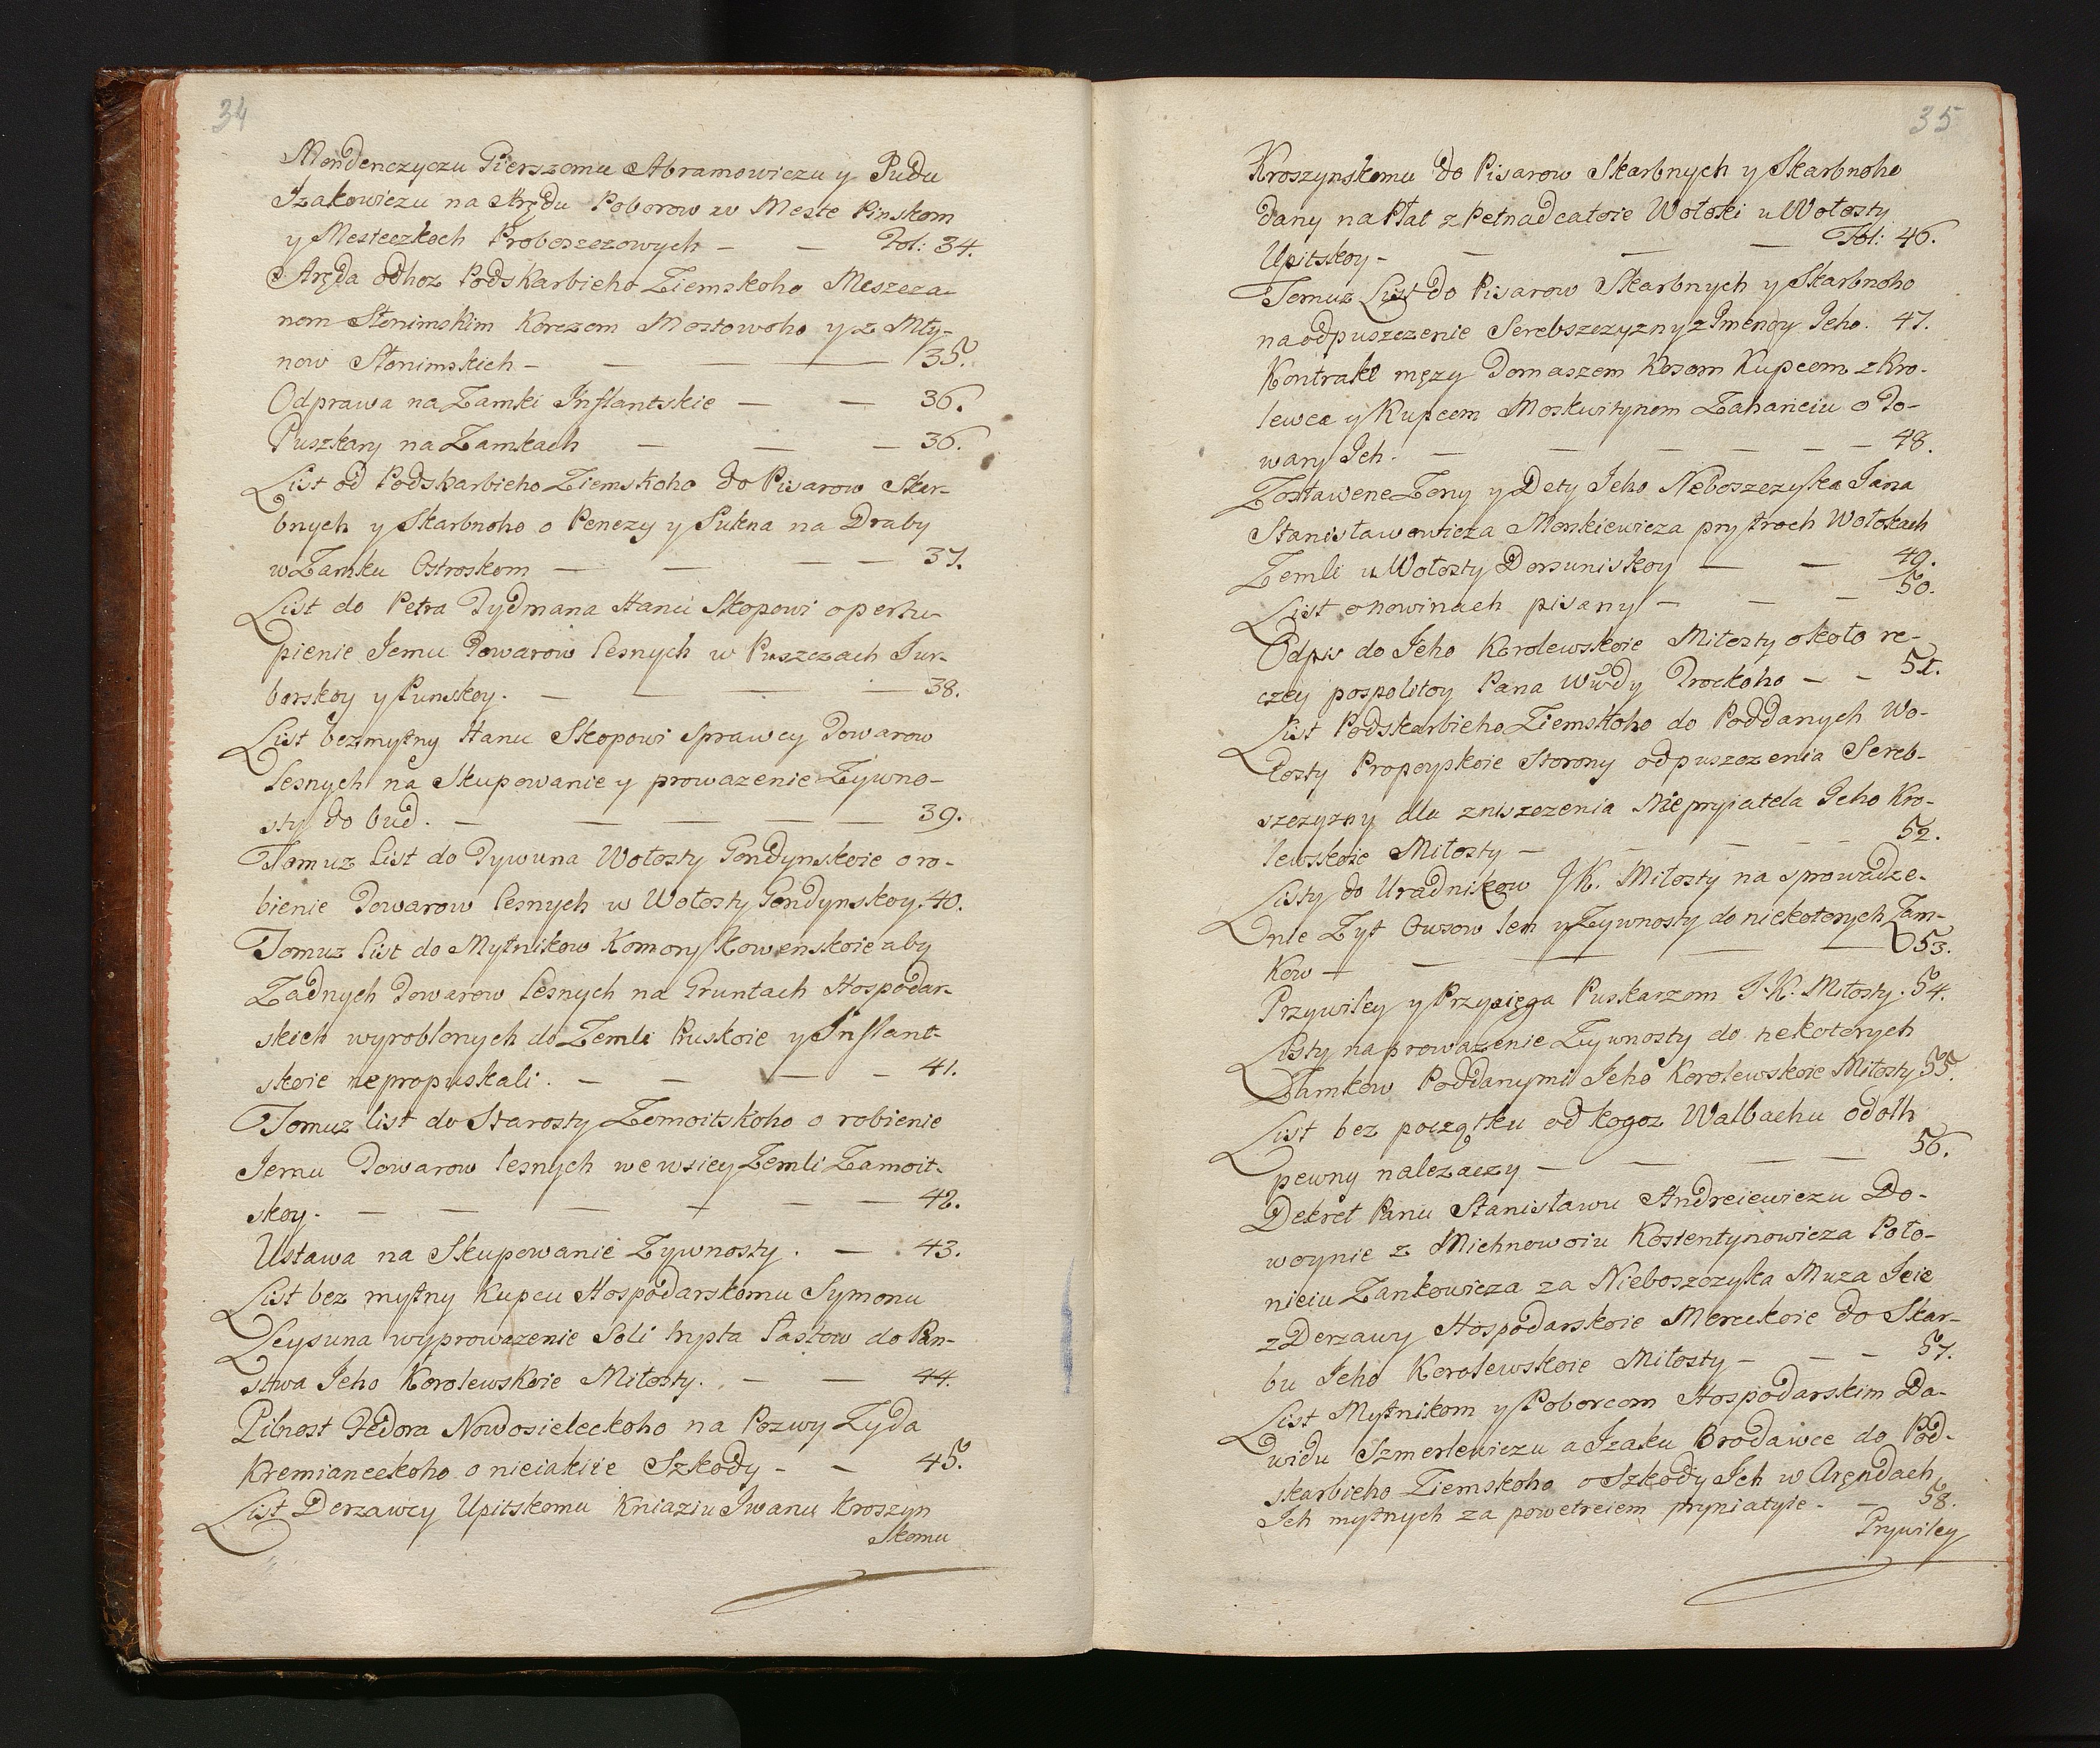 34
Mendenczyczu Pierszomu Abramowiczu y Pudu
Izakowiczu na Arędu Poborow w Meste Pinskom
y Mesteczkoch Proboszczowych - - Fol: 34.
Aręda odhoz Podskarbieho Ziemskoho Meszcza-
nom Słonimskim Korczom Mostowoho y z Mły-
now Słonimskich - - - - 35.
Odprawa na Zamki Inflantskie - - 36.
Puszkary na Zamkach - - - 36.
List od Podskarbieho Ziemskoho do Pisarow Skar-
bnych y Skarbnoho o Penezy y Sukna na Draby
w Zamku Ostroskom - - - - 37.
List do Petra Tydmana Hanu Skopowi o
pienie Jemu Towarow lesnych w Puszczach Jur-
borskoy y Punskoy. - - - - 38.
List bezmytny Hanu Skopowi Sprawcy Towarow
lesnych na Skupowanie y prowazenie Zywno-
sty do bud. - - - - - 39.
Tomuz List do Tywuna Wołosty Gondynskoie o ro-
bienie Towarow lesnych w Wołosty Gondynskoy. 40.
Tomuz list do Mytnikow Komory Kowenskoie aby
Zadnych Towarow lesnych na Gruntach Hospodar-
skich wyroblonych do Zemli Pruskoie y Inflant-
skoie nepropuskali. - - - - 41.
Tomuz list do Starosty Zomoitskoho o robienie
Jemu Towarow lesnych we wsiey Zemli Zamoit-
skoy. - - - - - - 42.
Ustawa na Skupowanie Zywnosty. - 43.
List bez mytny Kupcu Hospodarskomu Symonu
Leysuna wyprowazenie Soli Łastow do Pan-
stwa Jeho Korolewskoie Miłosty. - - 44.
Pilnost Fedora Nowosieleckoho na Pozwy Zyda
Kremianeckoho o nieiakiie Szkody - - 45.
List Derzawcy Upitskomu Kniaziu Iwanu Kroszyn
Skomu
35
Kroszynskomu do Pisarow Skarbnych y Skarbnoho
dany na Płat z Petnadcatoie Wołoki u Wołosty
Upitskoy - - - - Fol: 46.
Tomuz List do Pisarow Skarbnych y Skarbnoho
na odpuszczenie Serebszczyzny z Imenoy Jeho. 47.
Kontrakt męzy Domaszem Kosom Kupcom z Kro-
lewca y Kupcem Moskwitynom Zahanciu o To-
wary Ich. - - - - - - 48.
Zostawene Zony y Dety Jeho Neboszczyka Jana
Stanisławowicza Monkiewicza pry troch Wołokach
Zemli u Wołosty Dorsuniskoy - - 49.
List o nowinach pisany - - - 50.
Odpis do Jeho Korolewskoie Miłosty około re-
czey pospolitoy Pana Wwdy Trockoho - - 51.
List Podskarbieho Ziemskoho do Poddanych Wo-
łosty Propoyskoie Storony odpuszczenia Sereb-
szczyzny dla zniszczenia Niepryiatela Jeho Kro-
lewskoie Miłosty - - - - - 52.
Listy do Uradnikow J K. Miłosty na sprowadze-
nie Zyt Owsow len y Zywnosty do niekotorych Zam-
kow - - - - - - 53.
Przywiley y Przysięga Puskarzom J. K. Miłosty. 54.
Listy na prowazenie Zywnosty do nekotorych
Zamkow Poddanymi Jeho Korolewskoie Miłosty 55.
List bez początku od kogoz Walbachu odoth
pewny nalezaczy - - - - 56.
Dekret Panu Stanisławu Andreiewiczu Do-
woynie z Michnowoiu Kostentynowicza Poło-
nieiu Zankowicza za Nieboszczyka Muza Jeie
z Derzawy Hospodarskoie Mereckoie do Skar-
bu Jeho Korolewskoie Miłosty - - - 57.
List Mytnikom y Poborcom Hospodarskim Da-
widu Szmerlewiczu a Izaku Brodawce do Pod-
skarbieho Ziemskoho o Szkody Ich w Arędach
Ich mytnych za powetreiem pryniatyie. - 58.
Prywiley